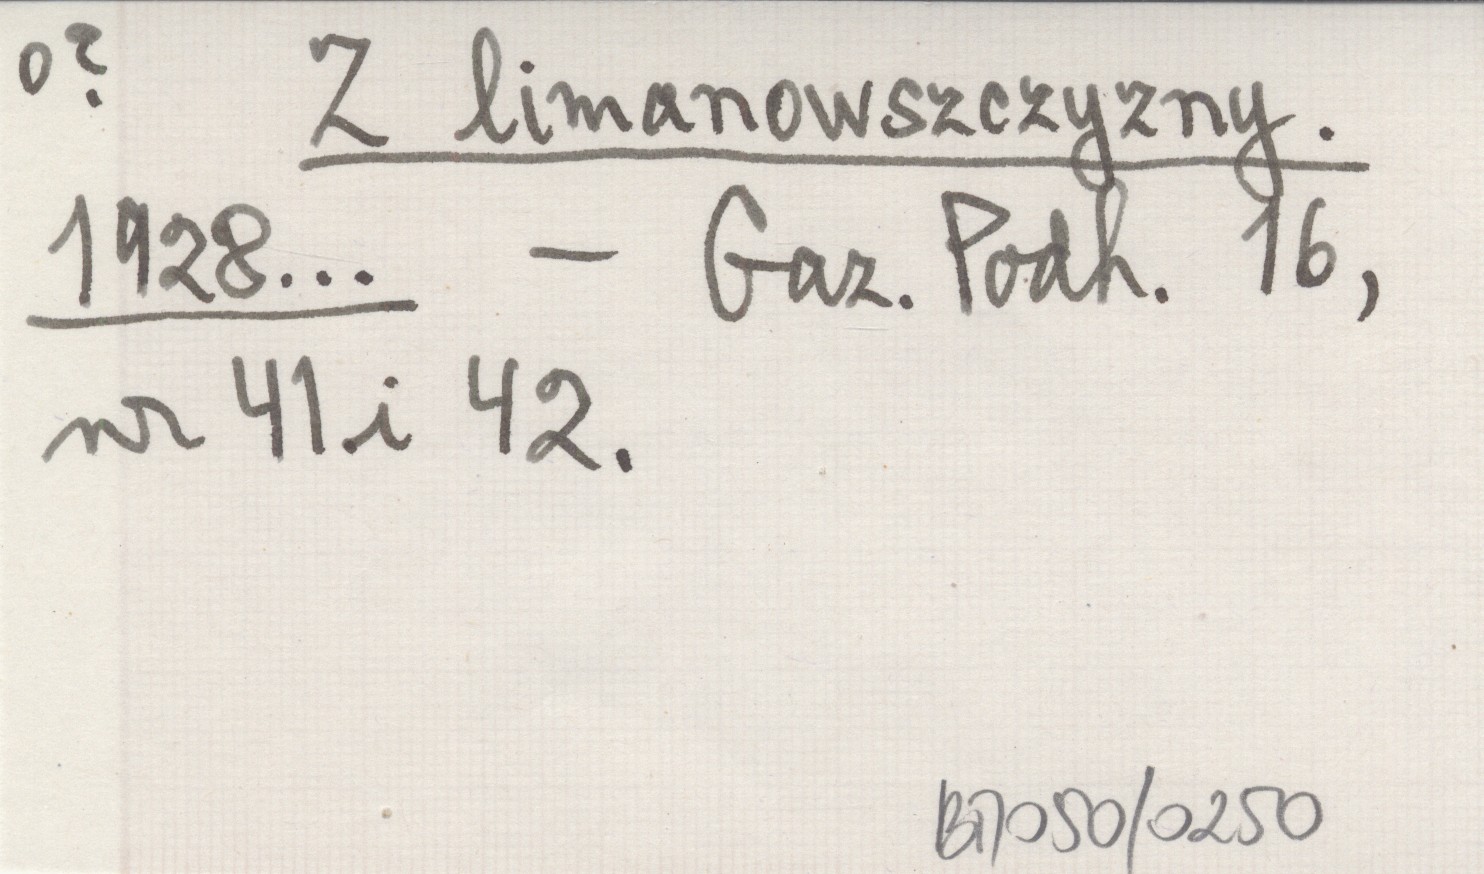 o? Z limanowszczyzny.
1928... – Gaz. Podh. 16,
nr 41 i 42.
BT/050/0250